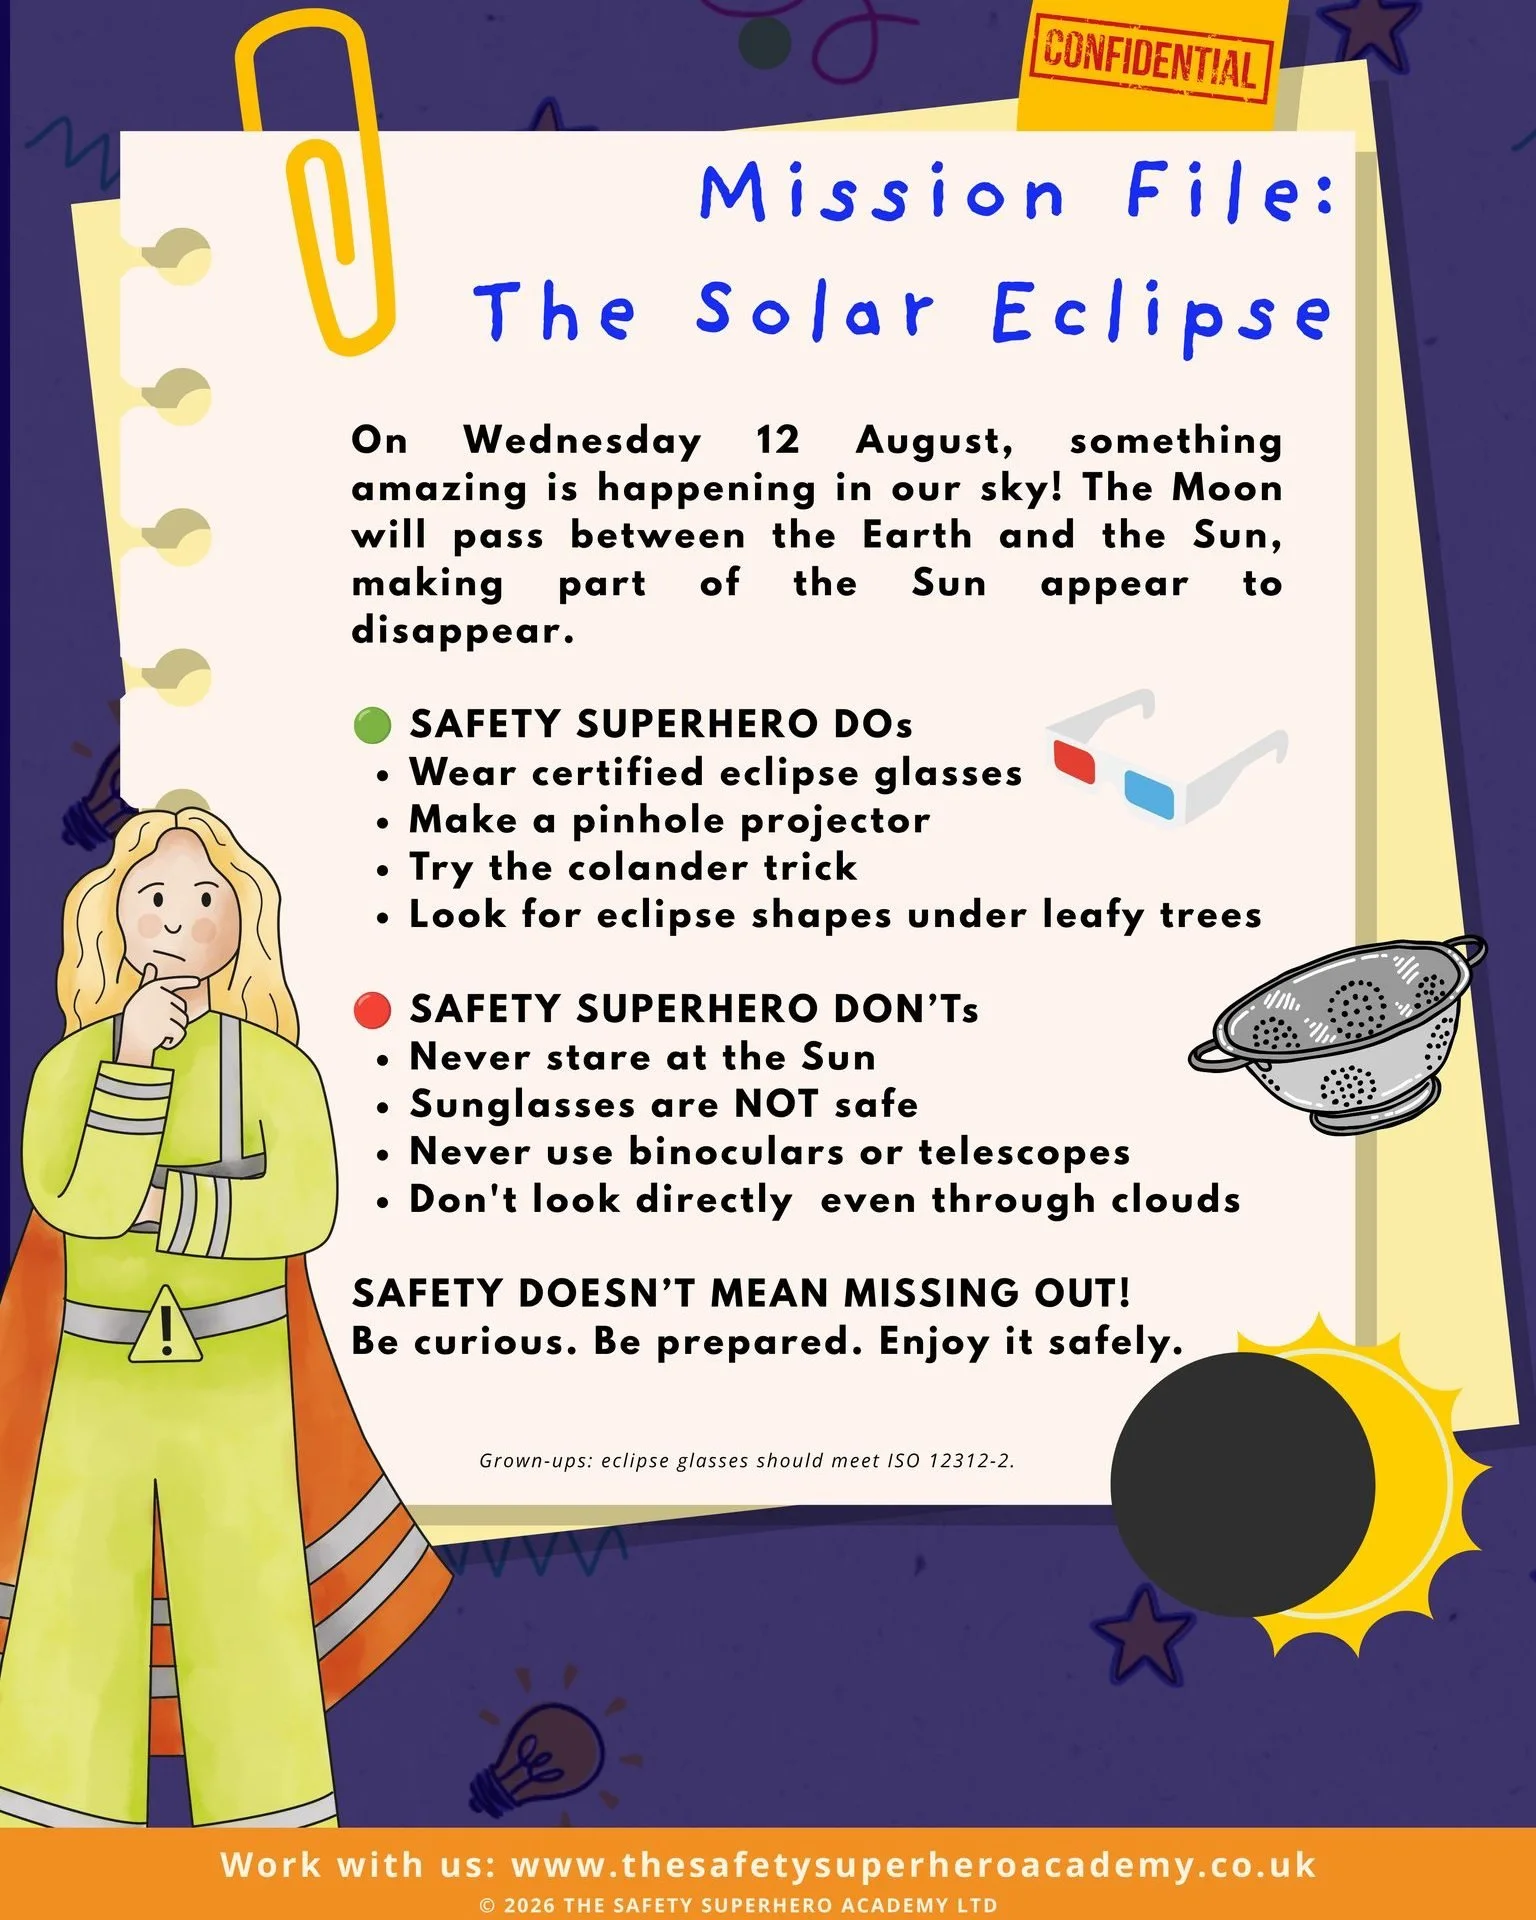 CONFIDENTIAL
Mission File:
The Solar Eclipse
On Wednesday 12 August, something
amazing is happening in our sky! The Moon
will pass between the Earth and the Sun,
making part of the Sun appear to
disappear.
🟢 SAFETY SUPERHERO DOs
• Wear certified eclipse glasses
• Make a pinhole projector
• Try the colander trick
• Look for eclipse shapes under leafy trees
🔴 SAFETY SUPERHERO DON’Ts
• Never stare at the Sun
• Sunglasses are NOT safe
• Never use binoculars or telescopes
• Don't look directly  even through clouds
SAFETY DOESN’T MEAN MISSING OUT!
Be curious. Be prepared. Enjoy it safely.
Grown-ups: eclipse glasses should meet ISO 12312-2.
!
Work with us: www.thesafetysuperheroacademy.co.uk
© 2026 THE SAFETY SUPERHERO ACADEMY LTD